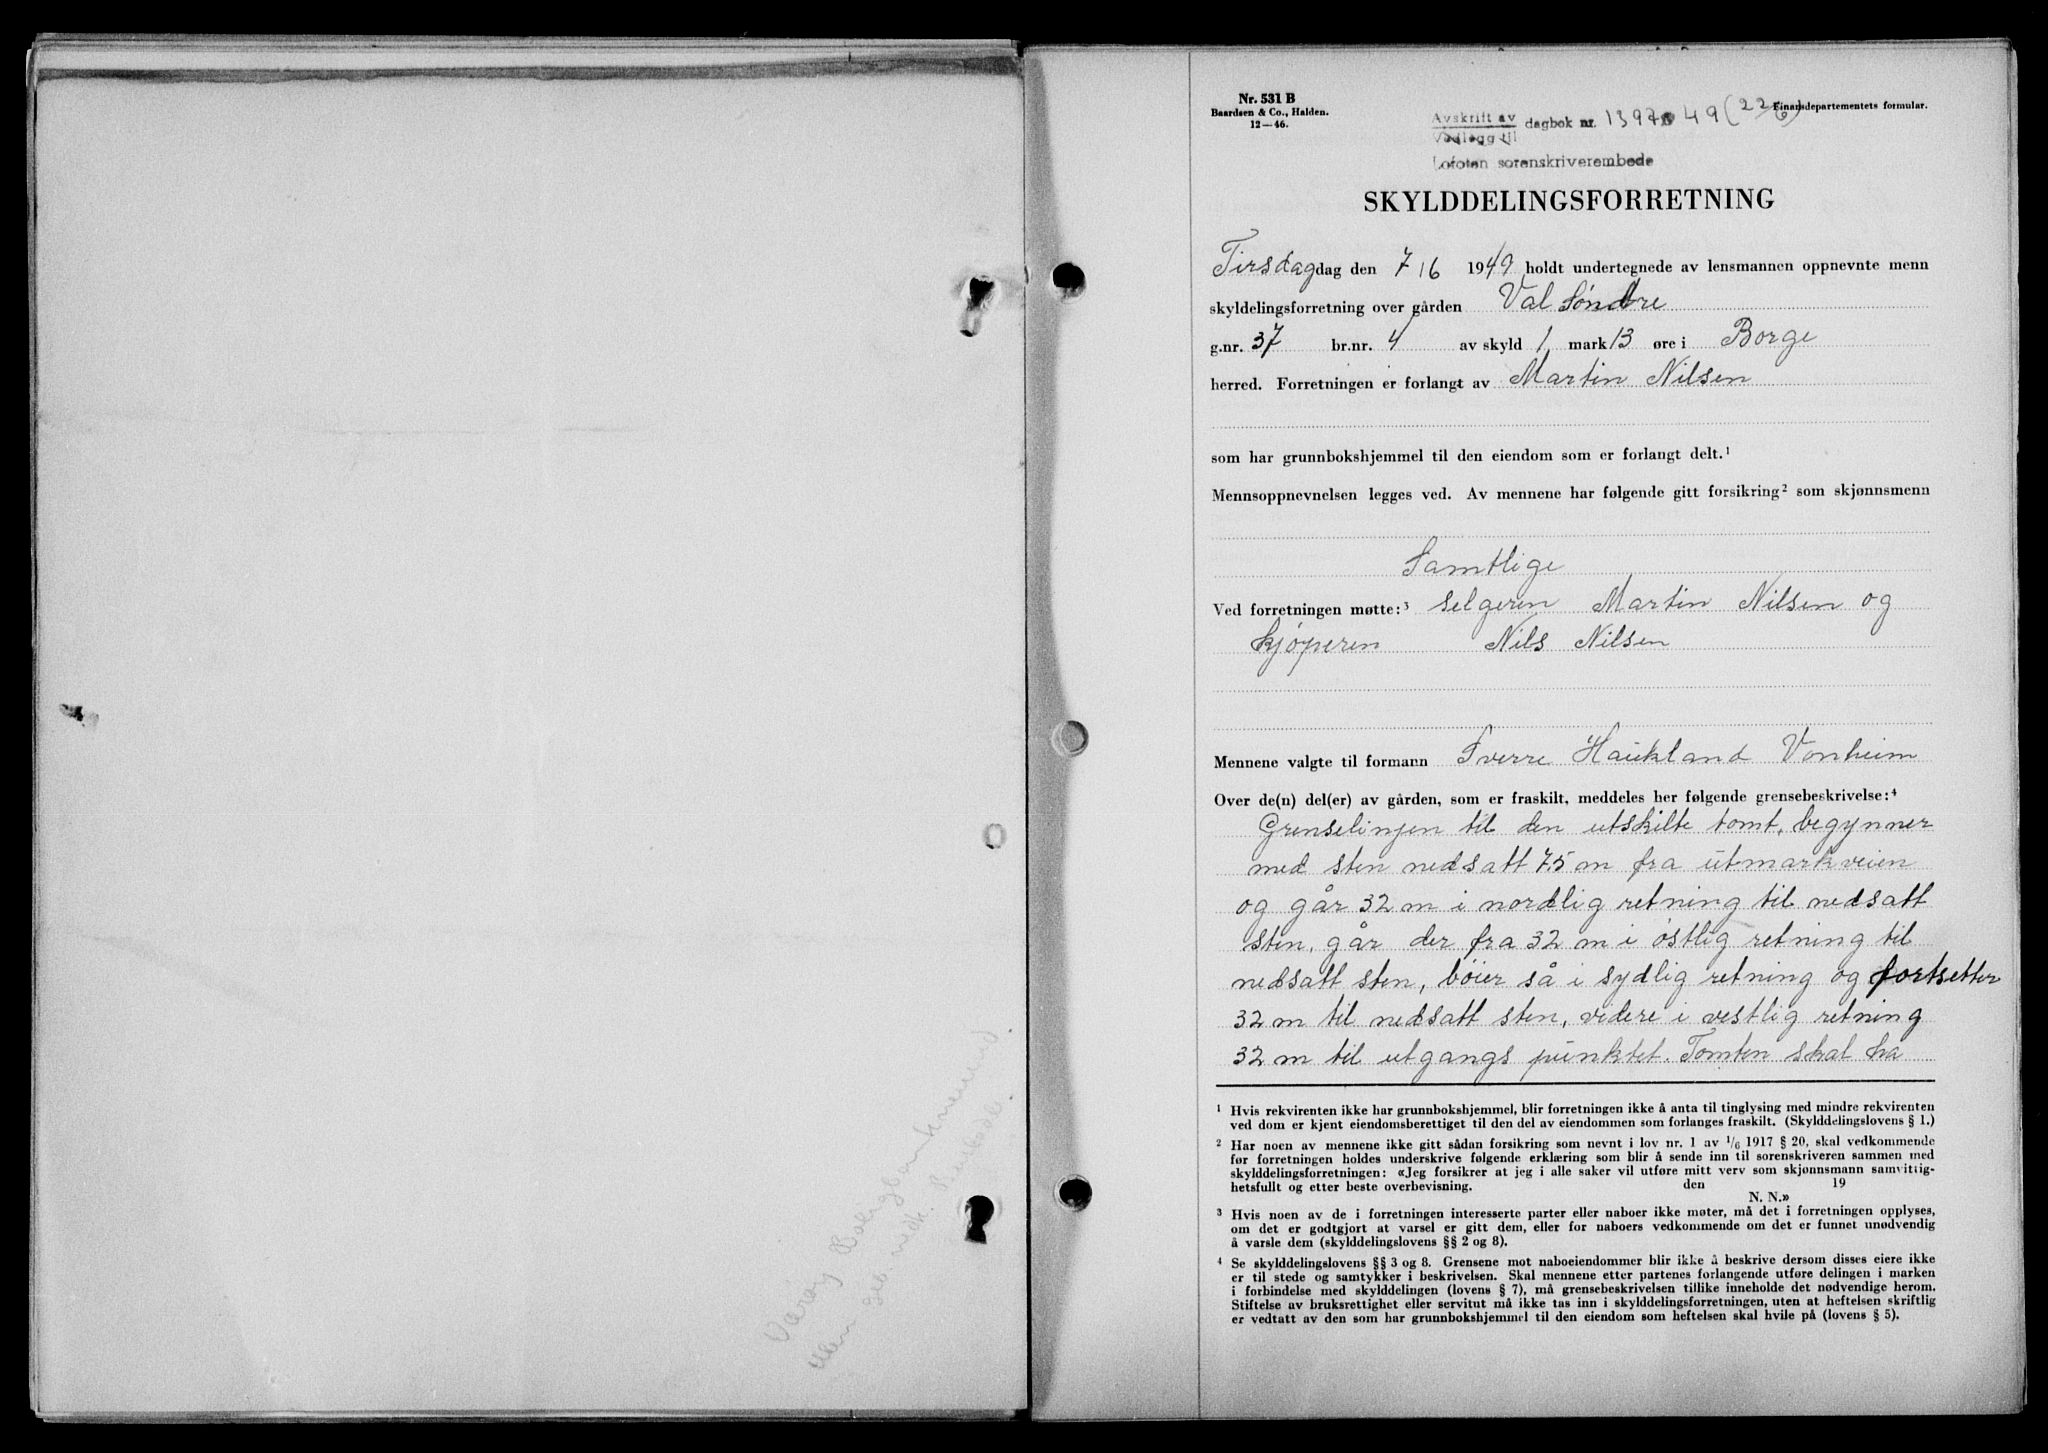 Nr. 531 B
Baardsen & Co., Halden.
12—46.
Finansdepartementets formular.
Avskrift av
Vedlegg til
dagbok nr. 1397 49 (22/6)
Lofoten sorenskriverembede
SKYLDDELINGSFORRETNING
Tirsdag dag den 7/6 1949 holdt undertegnede av lensmannen oppnevnte menn
skyldelingsforretning over gården Val Søndre
g.nr. 37 br.nr. 4 av skyld 1 mark 13 øre i Borge
herred. Forretningen er forlangt av Martin Nilsen
som har grunnbokshjemmel til den eiendom som er forlangt delt.¹
Mennsoppnevnelsen legges ved. Av mennene har følgende gitt forsikring² som skjønnsmenn
Samtlige
Ved forretningen møtte:³ selgeren Martin Nilsen og
kjøperen Nils Nilsen
Mennene valgte til formann Sverre Haukland Vonheim
Over de(n) del(er) av gården, som er fraskilt, meddeles her følgende grensebeskrivelse:⁴
Grenselinjen til den utskilte tomt, begynner
med sten nedsatt 7.5 m fra utmarkveien
og går 32 m i nordlig retning til nedsatt
sten, går der fra 32 m i østlig retning til
nedsatt sten, bøier så i sydlig retning og fortsetter
32 m til nedsatt sten, videre i vestlig retning
32 m til utgangs punktet. Tomten skal ha
¹ Hvis rekvirenten ikke har grunnbokshjemmel, blir forretningen ikke å anta til tinglysing med mindre rekvirenten
ved dom er kjent eiendomsberettiget til den del av eiendommen som forlanges fraskilt. (Skylddelingslovens § 1.)
² Har noen av mennene ikke gitt sådan forsikring som nevnt i lov nr. 1 av 1/6 1917 § 20, skal vedkommende
før forretningen holdes underskrive følgende erklæring som blir å sende inn til sorenskriveren sammen med
skylddelingsforretningen: «Jeg forsikrer at jeg i alle saker vil utføre mitt verv som skjønnsmann samvittig-
hetsfullt og etter beste overbevisning. den 19
N. N.»
³ Hvis noen av de i forretningen interesserte parter eller naboer ikke møter, må det i forretningen opplyses,
om det er godtgjort at varsel er gitt dem, eller for naboers vedkommende om det er funnet unødvendig
å varsle dem (skylddelingslovens §§ 2 og 8).
⁴ Se skylddelingslovens §§ 3 og 8. Grensene mot naboeiendommer blir ikke å beskrive dersom disses eiere ikke
er til stede og samtykker i beskrivelsen. Skal mennene etter partenes forlangende utføre delingen i marken
i forbindelse med skylddelingen (lovens § 7), må grensebeskrivelsen tillike inneholde det nødvendige herom.
Stiftelse av bruksrettighet eller servitut må ikke tas inn i skylddelingsforretningen, uten at heftelsen skriftlig
er vedtatt av den som har grunnbokshjemmel til den eiendom som heftelsen skal hvile på (lovens § 5).